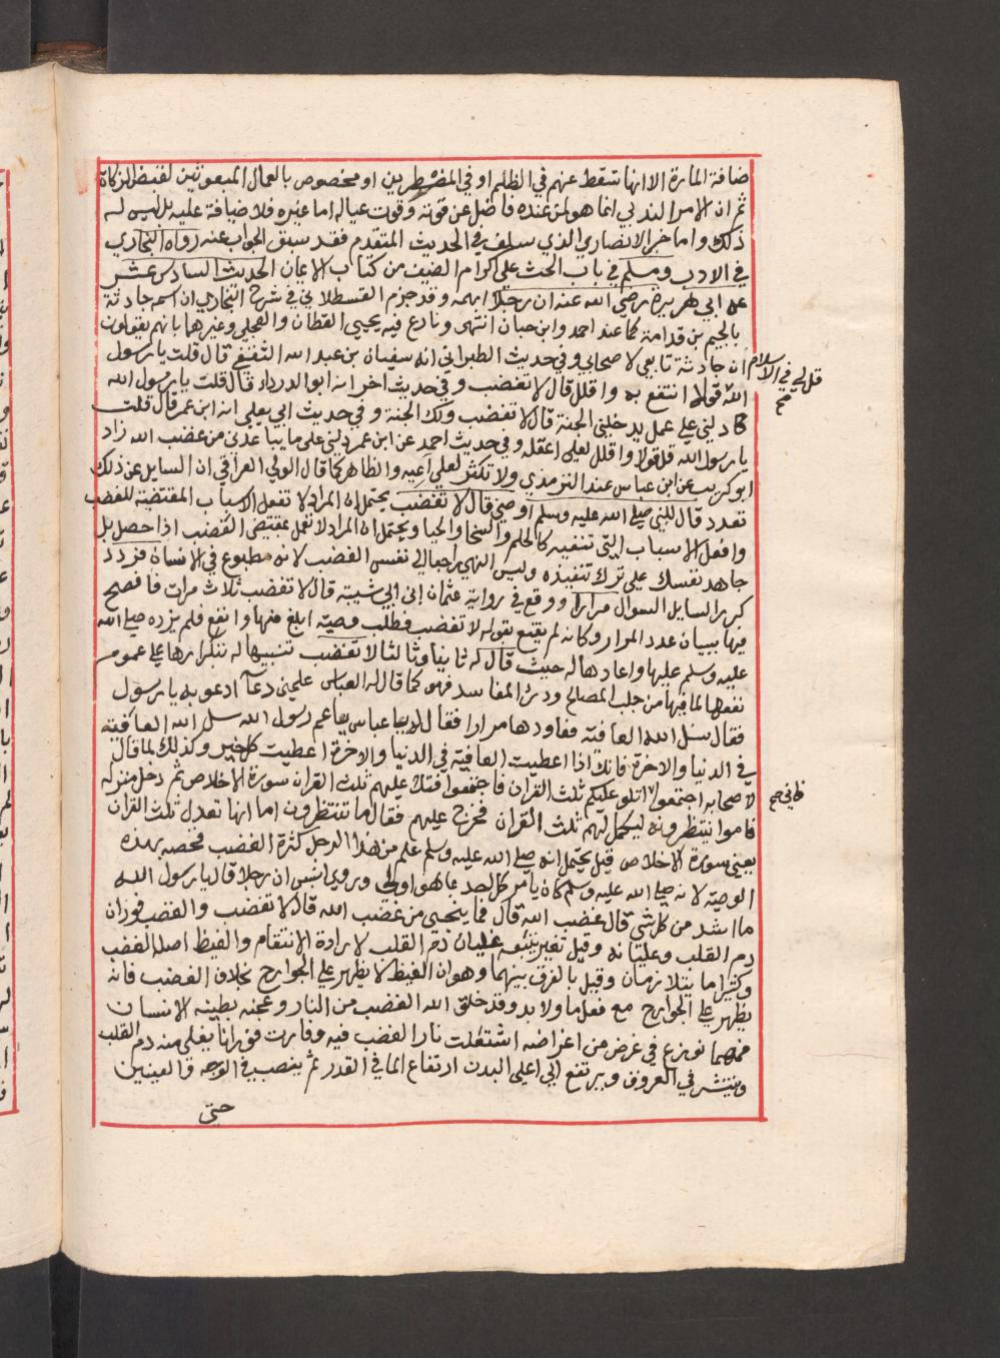 ضافة المارة الا انها تسقط عنهم في الظلم او في المضطرين او مخصوص بالعمال المبعوثين لقبض الزكاة
ثم ان الامر الندبي انما هو لمن عنده فاضل عن قوته وقوت عياله اما غيره فلا ضيافة عليه بل ليس له
ذلك واما خبر الانصاري الذي سلف في الحديث المتقدم فقد سبق الجواب عنه رواه البخاري
في الادب ومسلم في باب الحث على اكرام الضيف من كتاب الايمان الحديث السادس عشر
عن ابي هريرة رضي الله عنه ان رجلا ابهمه وقد جزم القسطلاني في شرح البخاري ان اسمه جارثة
بالجيم بن قدامة كما عند احمد وابن حبان انتهى ونازع فيه يحيى القطان والعجلي وغيرهما بانهم يقولون
ان جارثة تابعي لا صحابي وفي حديث الطبراني انه سفيان بن عبد الله الثقفي قال قلت يا رسول
قل لي في الاسلام صح
الله قولا انتفع به واقلل قال لا تغضب وفي حديث اخر انه ابو الدرداء قال قلت يا رسول الله
دلني على عمل يدخلني الجنة قال لا تغضب ولك الجنة وفي حديث ابي يعلى انه ابن عمر قال قلت
يا رسول الله قل قولا واقلل لعلي اعقله وفي حديث احمد عن ابن عمر دلني على ما يباعدني من غضب الله زاد
ابو كريب عن ابن عباس عند الترمذي ولا تكثر لعلي اعيه والظاهر كما قال الولي العراقي ان السايل عن ذلك
تعدد قال للنبي صلى الله عليه وسلم اوصني قال لا تغضب يحتمل ان المراد لا تفعل الاسباب المقتضية للغضب
وافعل الاسباب التي تنفيه كالحلم والسخا والحيا ويحتمل ان المراد لا تعمل بمقتضى الغضب اذا حصل بل
جاهد نفسك على ترك تنفيذه وليس النهي راجعا الى نفس الغضب لانه مطبوع في الانسان فردد
كرر السايل السوال مرارا ووقع في رواية عثمان ابن ابي شيبة قال لا تغضب ثلاث مرات فافصح
فيها ببيان عدد المرار وكانه لم يقنع بقوله لا تغضب فطلب وصية ابلغ منها وانفع فلم يزده صلى الله
عليه وسلم عليها واعادها له حيث قال له ثانيا وثالثا لا تغضب تنبيها له بتكرارها على عموم
نفعها لما فيها من جلب المصالح ودرئ المفاسد فهو كما قال له العباس علمني دعآ ادعو به يا رسول
فقال سل الله العافية فعاوده مرارا فقال له يا عباس يا عم رسول الله سل الله العافية
في الدنيا والاخرة فانك اذا اعطيت العافية في الدنيا والاخرة اعطيت كل خير وكذلك لما قال
لاصحابه اجتمعوا اتلو عليكم ثلث القران فاجتمعوا فتلى عليهم سورة الاخلاص ثم دخل منزله
فاني صح
فاموا ينتظرونه ليكمل لهم ثلث القران فخرج عليهم فقال ما تنتظرون اما انها تعدل ثلث القران
يعني سورة الاخلاص قيل يحتمل انه صلى الله عليه وسلم علم من هذا الرجل كثرة الغضب فخصه بهذه
الوصية لانه صلى الله عليه وسلم كان يامر كل احد بما هو اولى وروي انس ان رجلا قال يا رسول الله
ما اشد من كل شي قال غضب الله قال فما ينجي من غضب الله قال لا تغضب والغضب فوران
دم القلب وغليانه وقيل تغير يتبعه غليان دم القلب لارادة الانتقام والغيظ اصل الغضب
وكثيرا ما يتلازمان وقيل بالفرق بينهما وهو ان الغيظ لا يظهر على الجوارح بخلاف الغضب فانه
يظهر على الجوارح مع فعل ما ولا بد وقد خلق الله الغضب من النار وعجنه بطينة الانسان
فمهما نوزع في غرض من اغراضه اشتعلت نار الغضب فيه وفارت فورانا يغلي منه دم القلب
وينتشر في العروق ويرتفع الى اعلى البدن ارتفاع الما في القدر ثم ينصب في الوجه والعينين
حتى